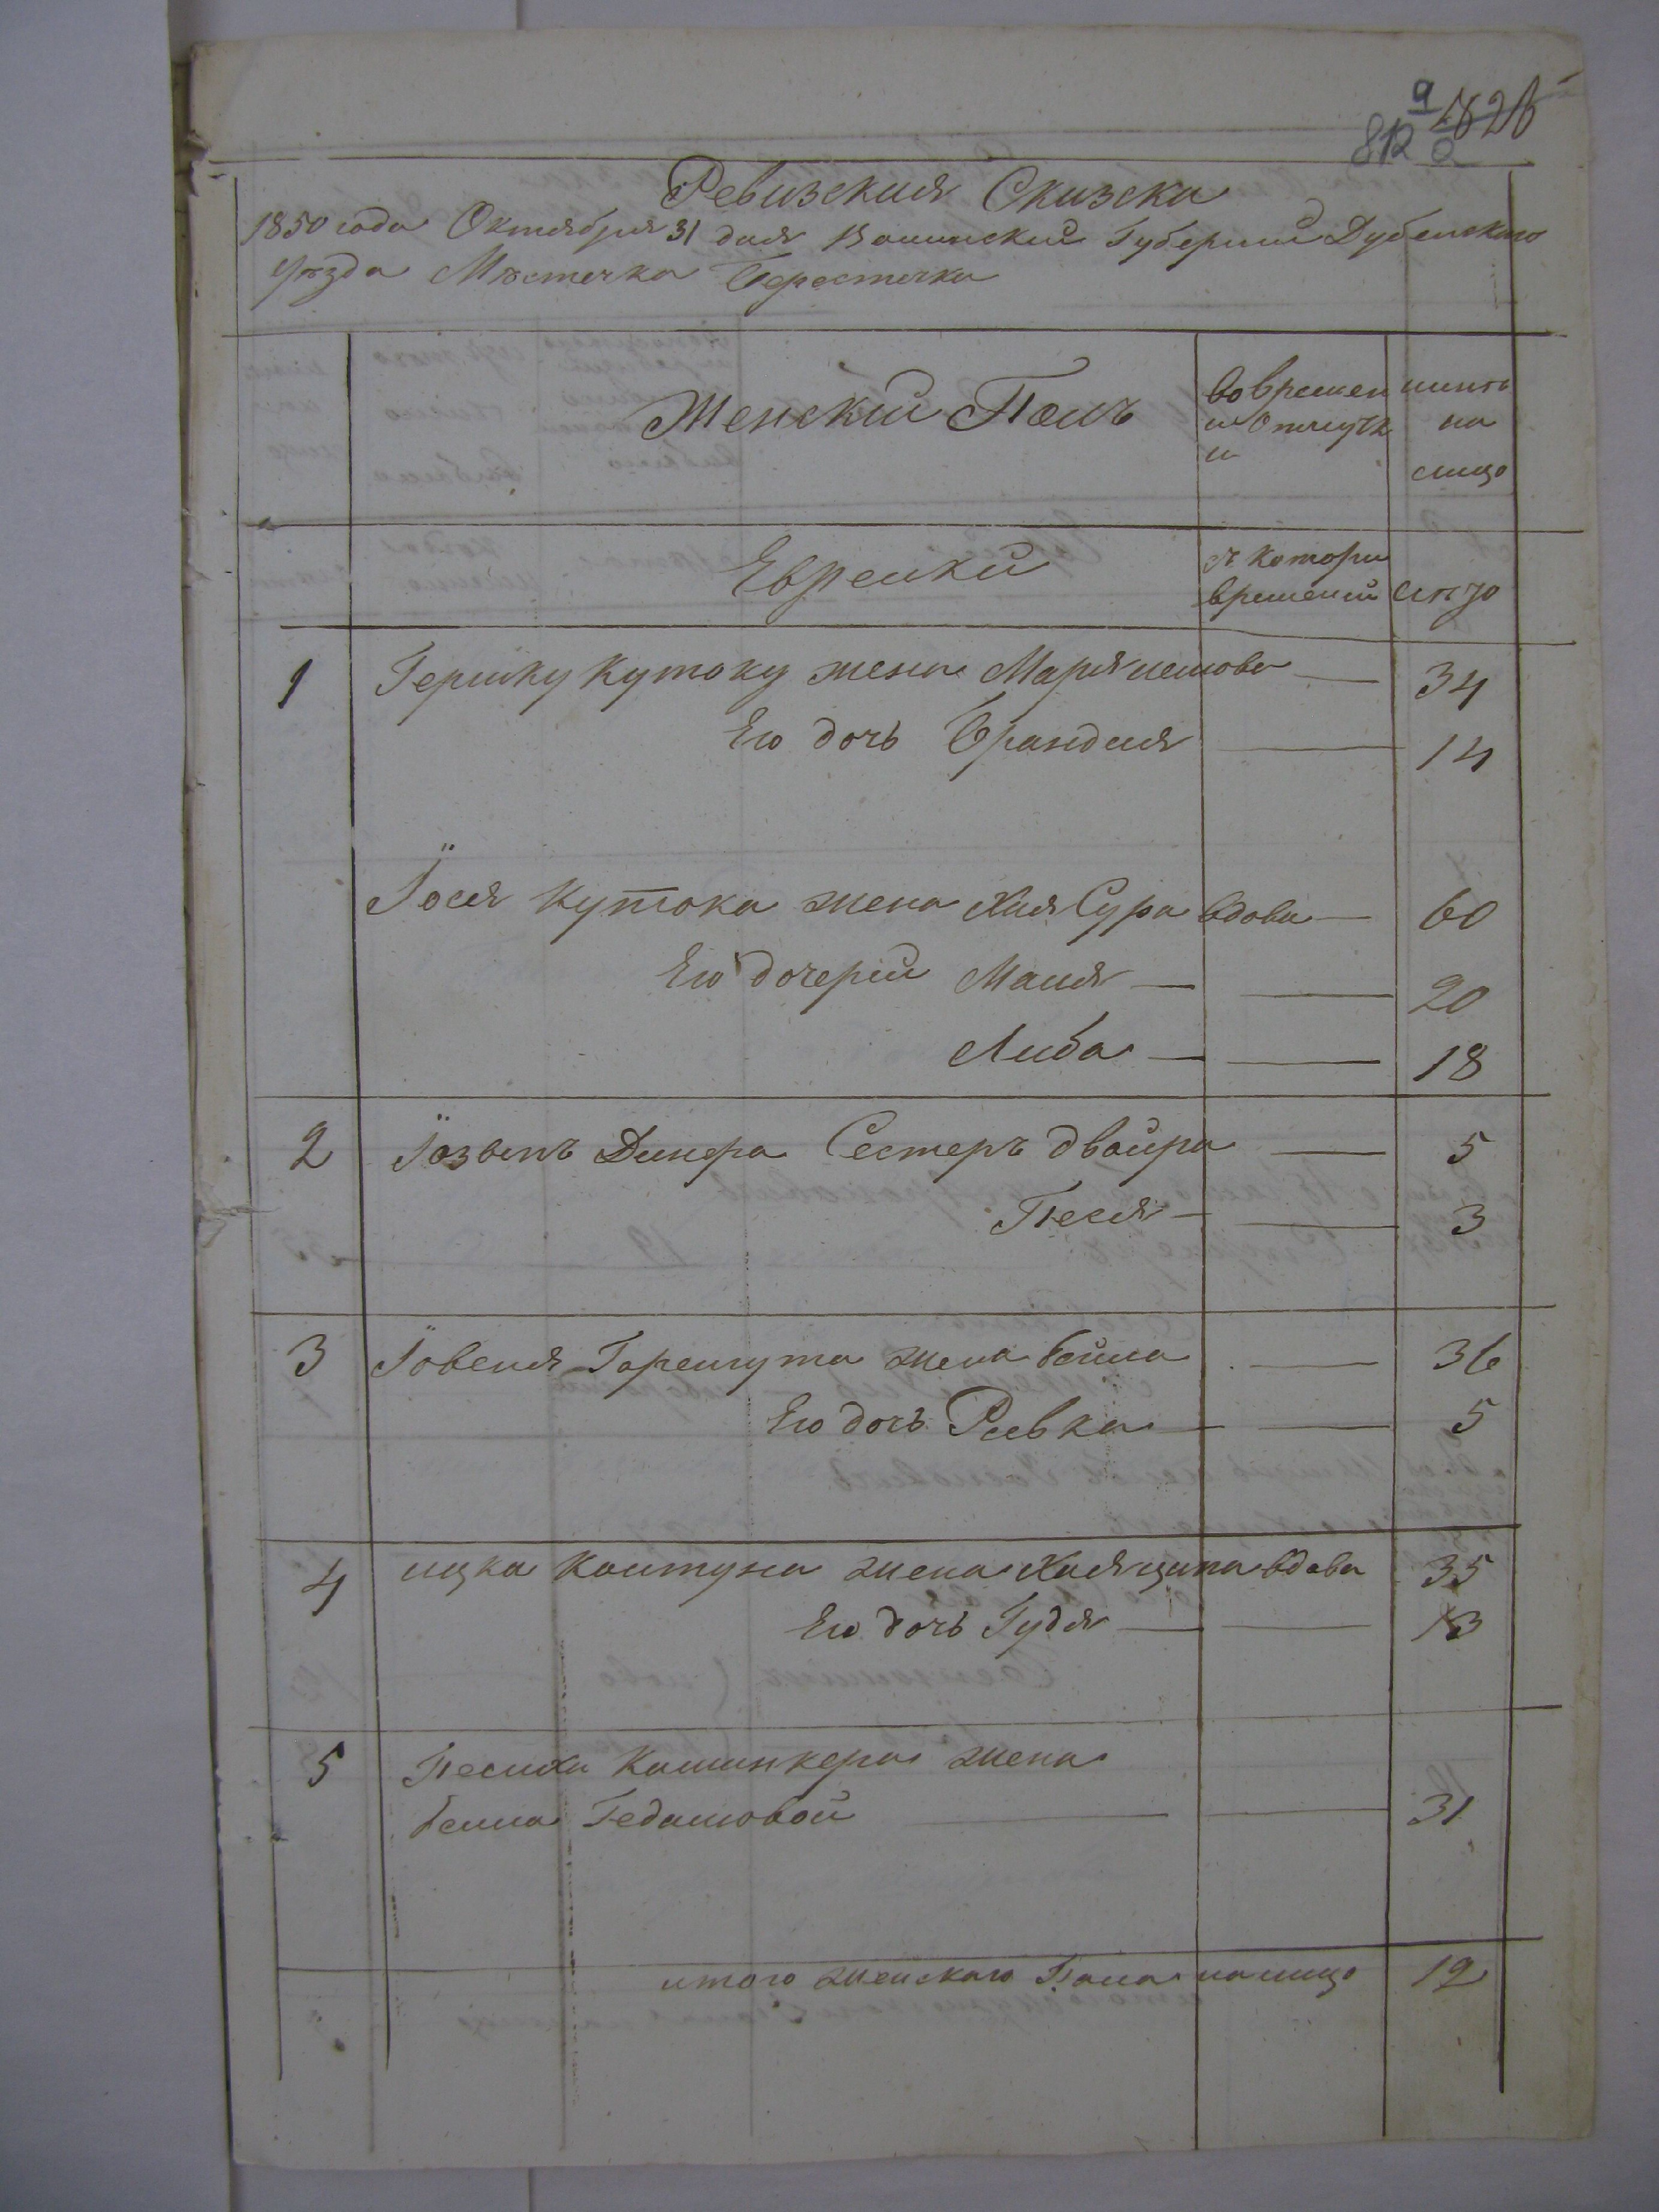 812
Ревизския Скизска
1850 года Октября 31 дня Волинский Губернии Дубенского
уѣзда Мѣстечка Берестечка
Женский Полъ
Во времен
и Отлучк
и
нинѣ
на
лицо
Еврейки
съ котори
времений
лѣто
1 Гершку Кутоку жена Марямешова — 34
Его дочь Брандля — 14
Іося Кутока жена Хая Сура вдова — 60
Его дочерий Маля — — 20
Либа — — 18
2 Іозвепъ Динера Сестеръ Двойра — 5
Песя — — 3
3 Іовеня Горенгута жена Бейла — 36
Его дочь Ривка — — 5
4 ицкаКолтуна жена Хая ципа вдова 35
Его дочь Гудя — — 13
5 Песиха Камискера жена
Бейла Гедалювой — — 31
итого женскаго Пола налицо 12